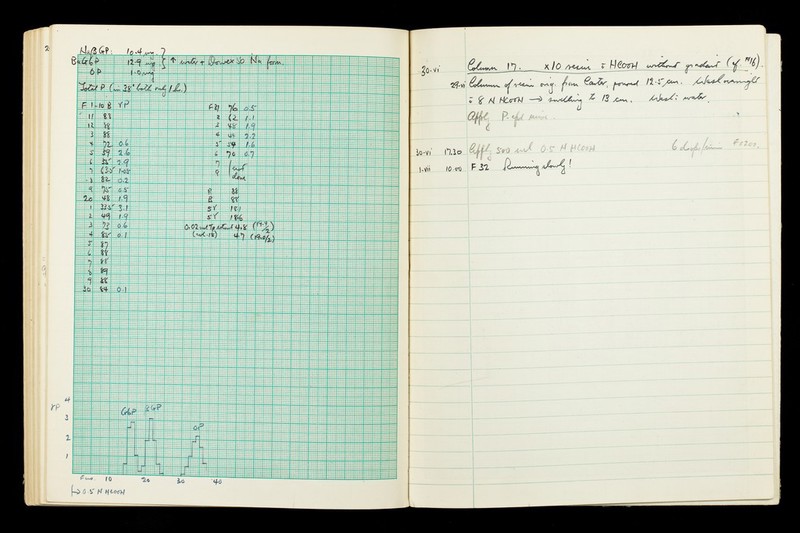 2
NaβGP: 10.4 mg.
BaG6P 12.9 mg ↑ water + Dowex 50 Na form.
OP 1.0 mg
Total P (in 38° bath only 1 hr.)
F 1-10 B γP
11 83
12 88
3 88
4 72 0.6
5 39 2.6
6 35 2.9
7 63.5 1.05
8 82 0.2
9 75 0.5
20 48 1.9
1 31.5 3.1
2 49 1.9
3 73 0.6
4 85 0.1
5 87
6 88
7 88
8 89
9 88
30 84 0.1
F31 76 0.5
2 62 1.1
3 48 1.9
4 43 2.2
5 54 1.6
6 70 0.7
7 not
9 done
B 88
B 88
5γ 181
5γ 186
0.02 ml Total 4.8
4.7
γP
4
3
2
1
G6P βGP OP
F no 10 20 30 40
0.5 N HCOOH
30.vi Column 17. x10 resin = HCOOH without gradient (cf #16).
29.vi Column of resin orig. from Carter, poured 12.5 cm. Wash overnight
= 8 N HCOOH → swelling to 13 cm. Wash = water.
Apply
30.vi 17.30 Apply 500 ml 0.5 N HCOOH
1.vii 10.00 F 32 Running slowly!